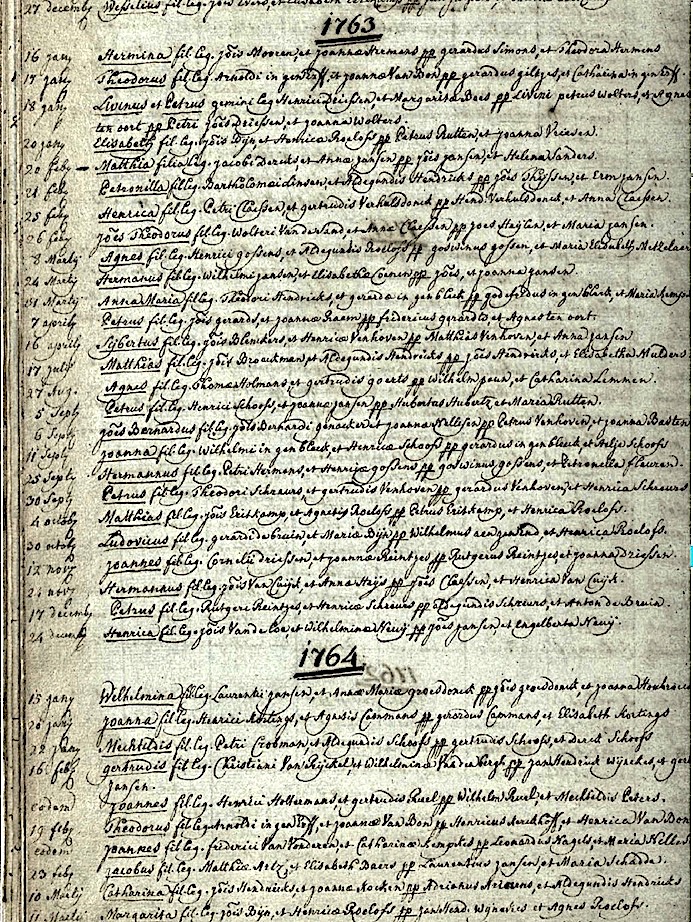 27 decemb Wesselius fil. leg.
1763
16 jany Hermina fil. leg. jois Mooren, et joanna Hermens pp gerardus Simons, et Theodora Hermens
17 jany Theodorus fil. leg. Arnoldi in gen et joanna Van Bon pp gerardus et Catharina in gen
18 jany Livinus et Petrus gemini leg. Henrici Driessen, et Margarita Bees pp Livini petrus Wolters, et
ten oort pp Petri jois Driessen, et joanna Wolters.
20 jany Elisabeth fil. leg. jois Dijn et Henrica Roelofs pp Petrus Rutten, et joanna Vriesen.
20 feby Matthia filia leg. jacobi Dercks, et Anna jansen pp jois jansen, et Helena Sanders.
21 feby Petronilla fil. leg. Bartholomaei Linsen, et Aldegundis Hendricks pp jois Thijssen, et Erm jansen
25 feby Henrica fil. leg. Petri Claessen, et gertrudis Verhulsdonck pp Hend. Verhulsdonck, et Anna Claessen.
26 feby jois Theodorus fil. leg. Wolteri Vanderland et Anna Claessen pp joes Heijlen, et Maria jansen.
8 Martij Agnes fil. leg. Henrici gossens, et Aldegundis Roelofs pp goswinus gossen, et Maria Elisabeth
24 Martij Hermanus fil. leg. Wilhelmi jansen, et Elisabetha Coenen pp jois, et joanna jansen.
31 Martij Anna Maria fil. leg. Theodori Hendricks, et gerarda in gen bleck pp godefridus in gen bleck, et Maria
7 aprilis Petrus fil. leg. jois gerards, et joanna Raem pp fridericus gerards et Agnes ten oort.
16 aprilis Sijbertus fil. leg. jois Blenckers et Henrica Venhoven pp Matthias Venhoven et Anna jansen
17 julii Matthias fil. leg. jois Broeckman, et Aldegundis Hendricks pp jois Hendricks, et Elisabetha Mulders
27 Aug. Agnes fil. leg. Thomae Holmans, et gertrudis goerts pp Wilhelm et Catharina Lemmen.
5 Septb Petrus fil. leg. Henrici Schoofs, et joanna jansen pp Hubertus Hubertz et Maria Rutten.
6 Septb jois Bernardus fil. leg. jois Berhardi et joanna Nellissen pp Petrus Venhoven, et joanna Basten
11 Septb joanna fil. leg. Wilhelmi in gen bleck, et Henrica Schoofs pp gerardus in gen bleck et Schoofs
25 Septb Hermannus fil. leg. Petri Hermens, et Henrica gossens pp goswinus gossens, et Petronella
30 Septb Petrus fil. leg. Theodori Schreurs, et gertrudis Venhoven pp gerardus Venhoven, et Henrica Schreurs
4 octob Matthias fil. leg. jois Eritkamp, et Agnetis Roelofs pp Petrus Eritkamp, et Henrica Roelofs.
30 octob Ludovicus fil. leg. gerardi de bruin, et Maria Dijn pp Wilhelmus et Henrica Roelofs.
12 novb joannes fil. leg. Cornelii driessen, et joanna Reintjes pp Rutgerus Reintjes, et joanna Driessen.
21 novb Hermannus fil. leg. jois Van Cuijck, et Anna Heijs pp jois Claessen, et Henrica Van Cuijk.
17 decemb Petrus fil. leg. Rutgeri Reintjes, et Henrica Schreurs pp aldegundis Schreurs, et Anton de Bruin.
24 decemb Henrica fil. leg. jois Van de Loe, et Wilhelmina Neuij pp jois jansen, et Engelberta Neuij.
1764
15 jany Wilhelmina fil. leg. Laurentii jansen, et Anna Maria groesdonck pp jois groesdonck et joanna
20 jany joanna fil. leg. Henrici Kortings, et Agnetis Cammans pp gerardus Cammans, et Elisabeth Kortings
22 jany Mechtildis fil. leg. Petri Cropman, et Aldegundis Schoofs pp gertrudis Schoofs, et derck Schoofs
16 feby gertrudis fil. leg. Christiani Van Rijckel, et Wilhelmina Vandenbergh pp jan Hendrick Wijnekes, et
jansen.
eodem joannes fil. leg. Henrici Holtermans, et gertrudis Ruel pp Wilhelm Ruel, et Mechtildis Peters.
19 feby Theodorus fil. leg. Arnoldi in gen et joanna Van Bon pp Henricus et Henrica Van Bon
eodem joannes fil. leg. frederici Van Vonderen, et Catharina Kempkes pp Leonardus Nagels, et Maria
25 feby jacobus fil. leg. Matthiae et Elisabeth Baers pp Laurentius jansen, et Maria Schadde.
10 Martij Catharina fil. leg. jois Hendricks, et joanna Kocken pp Adrianus et Aldegundis Hendricks
Martij Margarita fil. leg. jois Dijn, et Henrica Roelofs pp jan Hend. Wijnekes, et Agnes Roelofs.